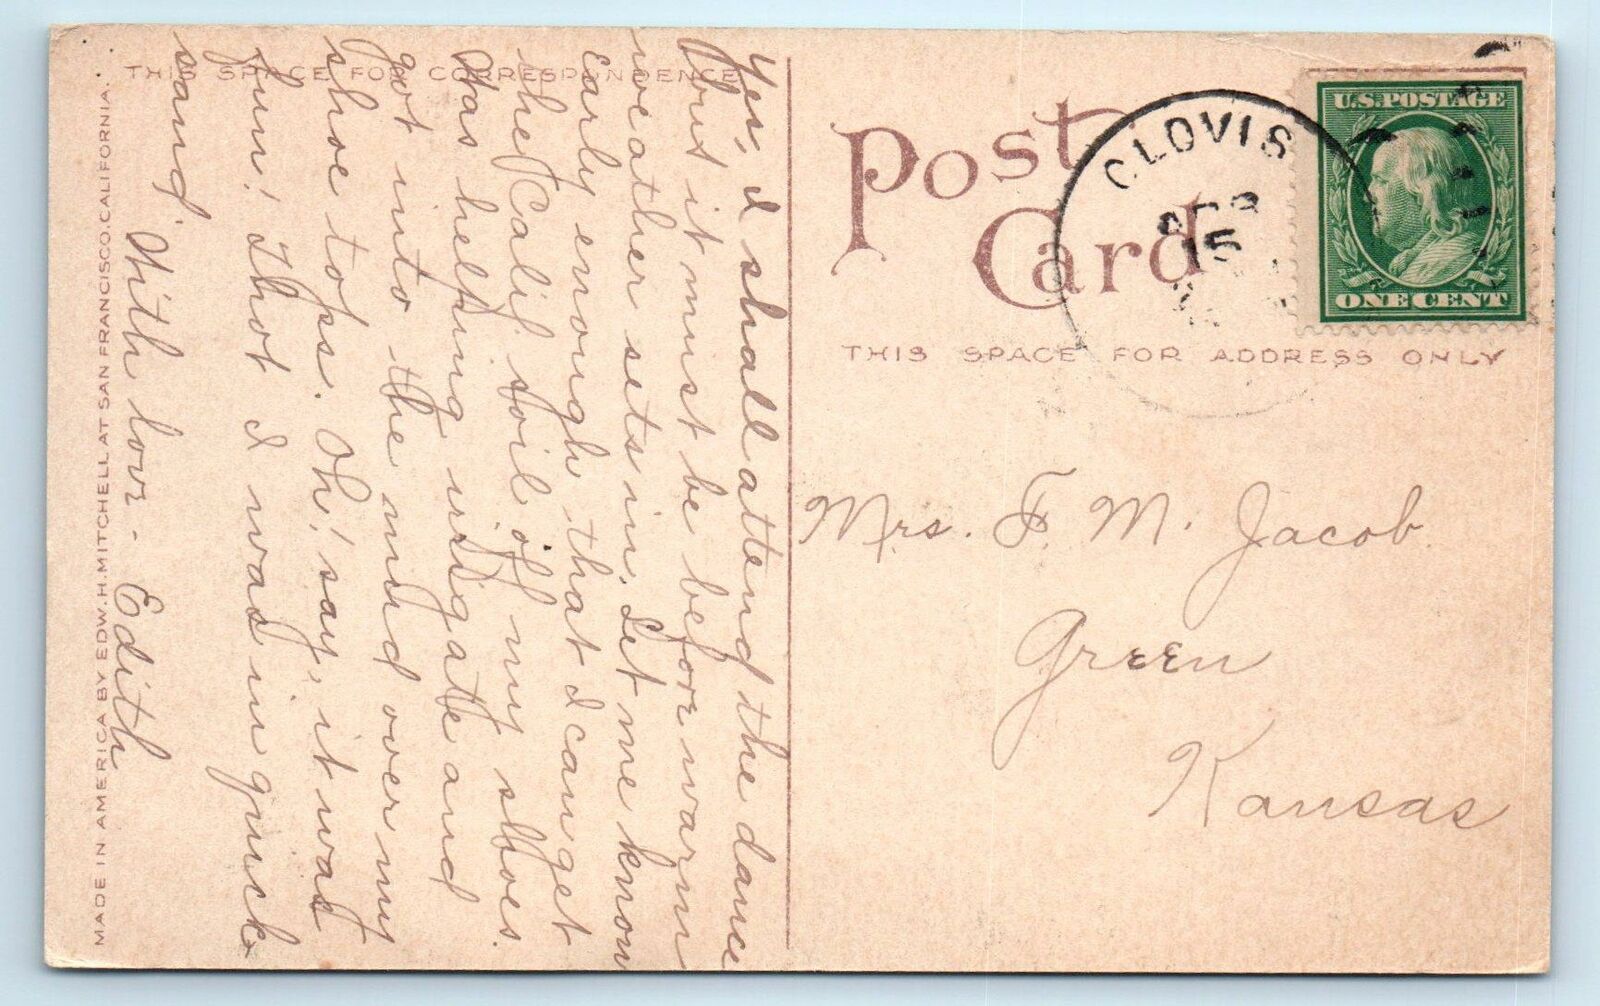 THIS SPACE FOR CORRESPONDENCE
Yes, I shall attend the dance
but it must be before warm
weather sets in. Let me know
early enough that I can get
the Calif. soil off my shoes.
Was helping irrigate and
got into the mud over my
shoe tops. Oh! say, it was
fun! Thot I was in quick
sand.
With love - Edith
MADE IN AMERICA BY EDW. H. MITCHELL AT SAN FRANCISCO. CALIFORNIA.
Post Card
CLOVIS
APR
15
U.S. POSTAGE
ONE CENT
THIS SPACE FOR ADDRESS ONLY
Mrs. F. M. Jacob
Green
Kansas